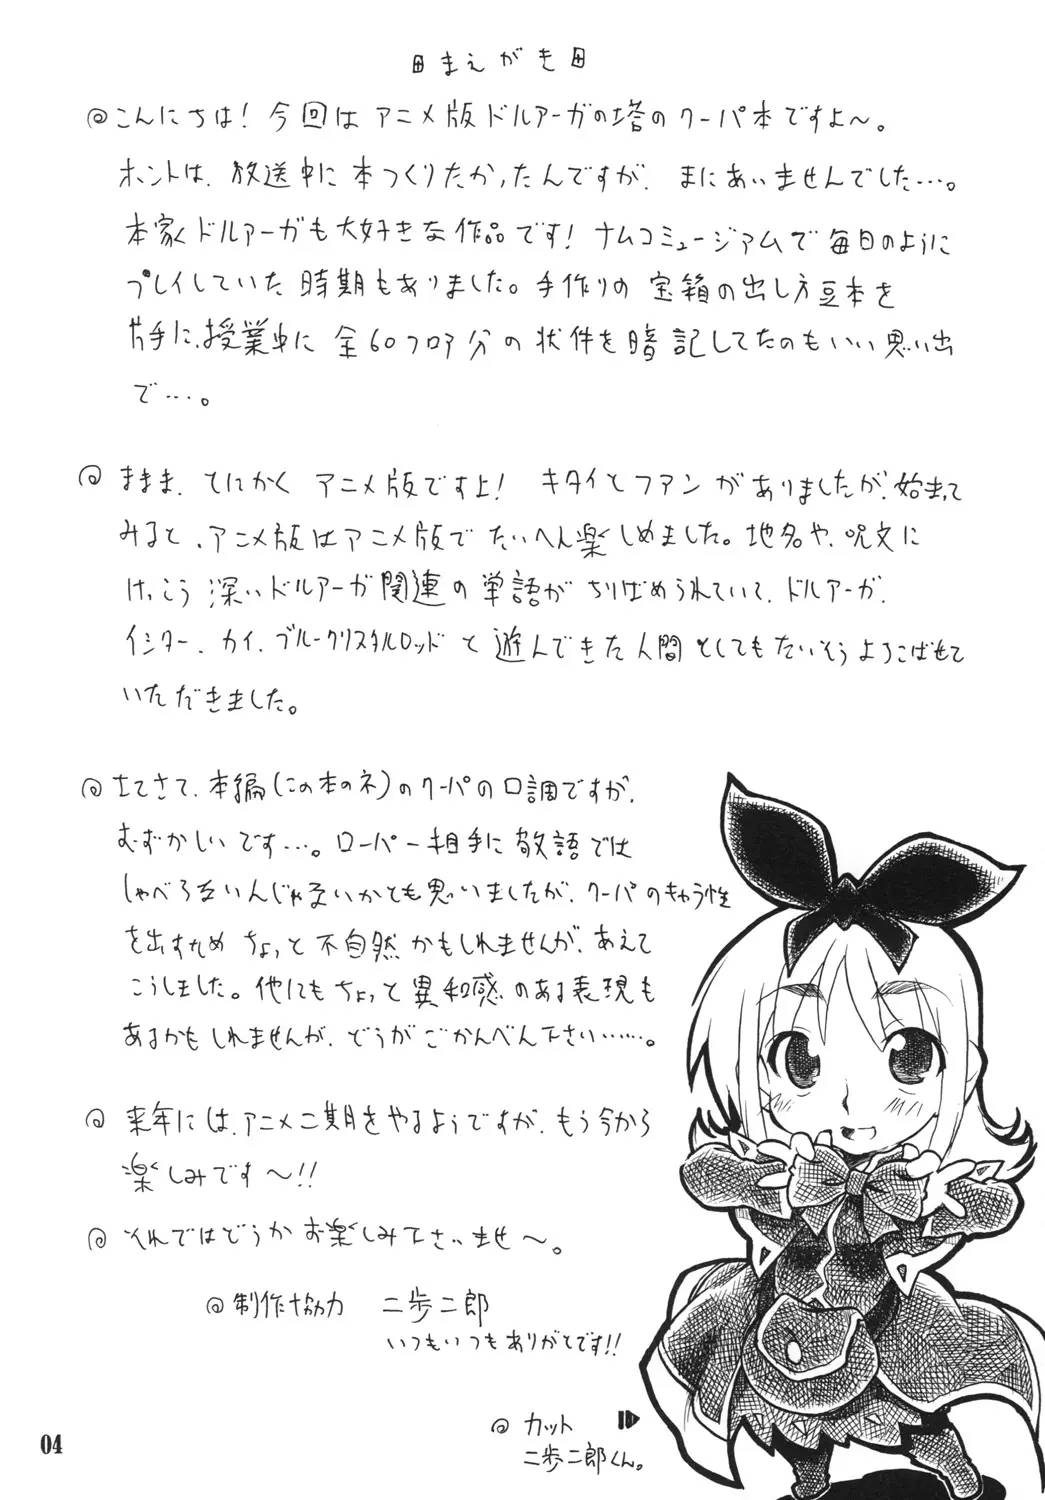 まえがき
こんにちは！今回はアニメ版ドルアーガの塔のクーパ本ですよ〜。
ホントは、放送中に本つくりたかったんですが、まにあいませんでした…。
本家ドルアーガも大好きな作品です！ナムコミュージアムで毎日のように
プレイしていた時期もありました。手作りの宝箱の出し方豆本を
片手に、授業中に全60フロア分の状件を暗記してたのもいい思い出
で…。
ままま、とにかくアニメ版ですよ！キタイとファンがありましたが、始まって
みると、アニメ版はアニメ版でたいへん楽しめました。地名や、呪文に
けっこう深いドルアーガ関連の単語がちりばめられていて、ドルアーガ、
イシター、カイ、ブルークリスタルロッドと遊んできた人間としてもたいそうよろこばせて
いただきました。
さてさて、本編(この本のネ)のクーパの口調ですが、
むずかしいです…。ローパー相手に敬語では
しゃべらないんじゃないかとも思いましたが、クーパのキャラ性
を出すためちょっと不自然かもしれませんが、あえて
こうしました。他にもちょっと異和感のある表現も
あるかもしれませんが、どうかごかんべん下さい……。
来年には、アニメ二期をやるようですが、もう今から
楽しみです〜!!
それではどうかお楽しみ下さいませ〜。
制作協力　二歩二郎
いつもいつもありがとです!!
カット
二歩二郎くん。
04